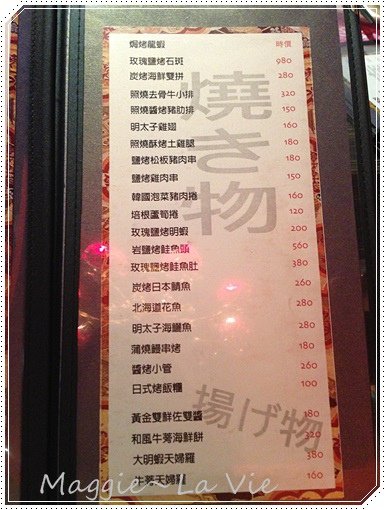 燒き物
焗烤龍蝦 時價
玫瑰鹽烤石斑 980
炭烤海鮮雙拼 280
照燒去骨牛小排 320
照燒醬烤豬肋排 150
明太子雞翅 160
照燒酥烤土雞腿 180
鹽烤松板豬肉串 180
鹽烤雞肉串 150
韓國泡菜豬肉捲 160
培根蘆筍捲 120
玫瑰鹽烤明蝦 200
岩鹽烤鮭魚頭 560
玫瑰鹽烤鮭魚肚 380
炭烤日本鯖魚 260
北海道花魚 280
明太子海鱺魚 280
蒲燒鰻串烤 180
醬烤小管 260
日式烤飯糰 100
揚げ物
黃金雙鮮佐雙醬 180
和風牛蒡海鮮餅 320
大明蝦天婦羅 380
牛蒡天婦羅 160
Maggie~La Vie